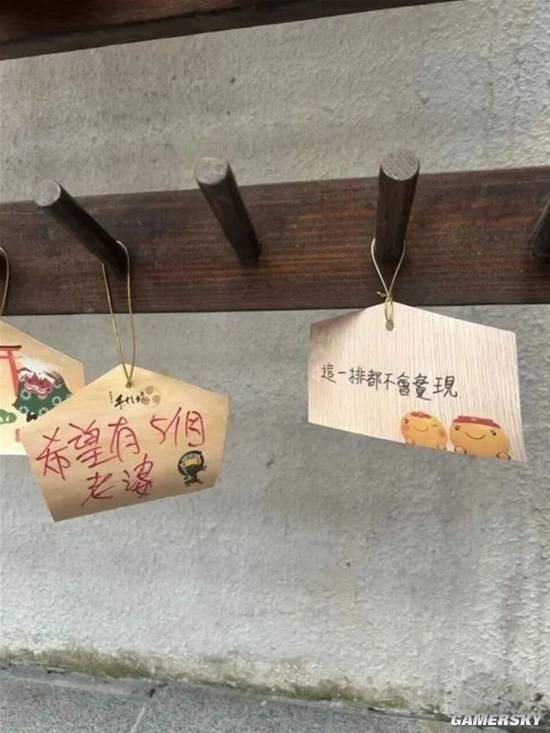 希望有5個
老婆
這一排都不會實現
GAMERSKY